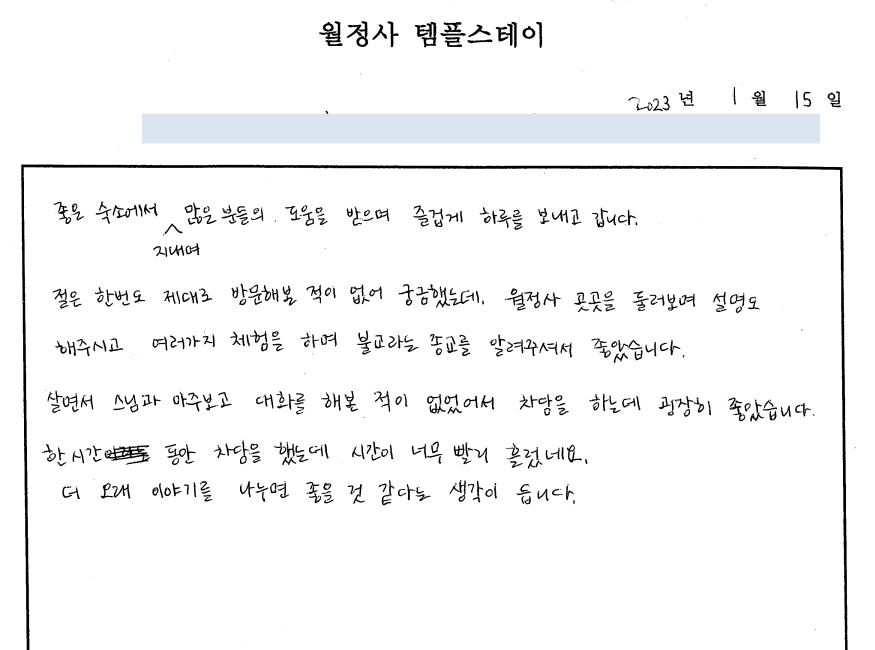 월정사 템플스테이
2023년 1월 15일
좋은 숙소에서 지내며 많은 분들의 도움을 받으며 즐겁게 하루를 보내고 갑니다.
절은 한번도 제대로 방문해본 적이 없어 궁금했는데, 월정사 곳곳을 둘러보며 설명도
해주시고 여러가지 체험을 하며 불교라는 종교를 알려주셔서 좋았습니다.
살면서 스님과 마주보고 대화를 해본 적이 없었어서 차담을 하는데 굉장히 좋았습니다.
한 시간 동안 차담을 했는데 시간이 너무 빨리 흘렀네요.
더 오래 이야기를 나누면 좋을 것 같다는 생각이 듭니다.